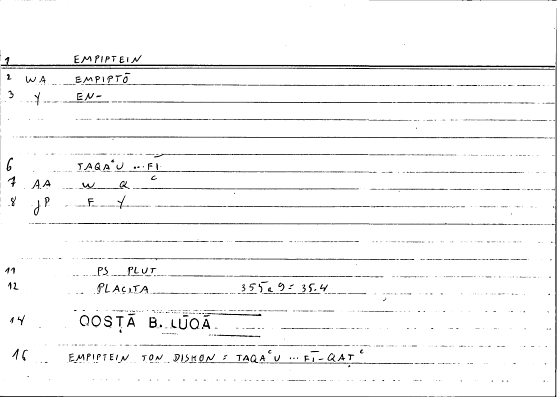 1 EMPIPTEIN
2 WA EMPIPTŌ
3 Y EN-
6 TAQAʿU ... FĪ
7 AA W Q ʿ
8 jP F Y
11 PS PLUT
12 PLACITA 355a9 = 35.4
14 QOSṬĀ B. LŪQĀ
16 EMPIPTEIN TON DISKON = TAQAʿU ... FĪ-QAṬʿ